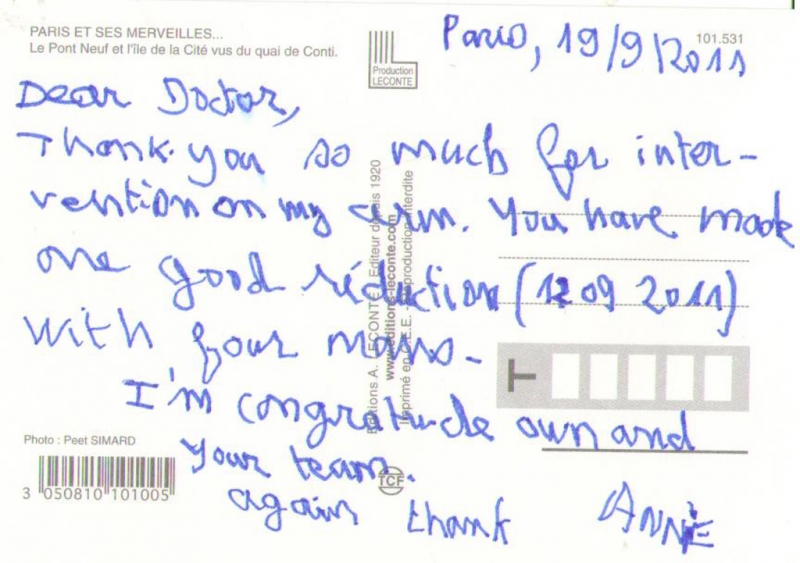 PARIS ET SES MERVEILLES...
Le Pont Neuf et l'île de la Cité vus du quai de Conti.
Production
LECONTE
101.531
Paris, 19/9/2011
Dear Doctor,
Thank you so much for inter-
vention on my arm. You have made
one good réduction (12 09 2011)
with your mains.
I'm congratude own and
your team.
again thank ANNIE
Editions A. LECONTE - Editeur depuis 1920
www.editions-leconte.com
Imprimé en C.E.E. - Reproduction interdite
Photo : Peet SIMARD
3 050810 101005
TCF
T